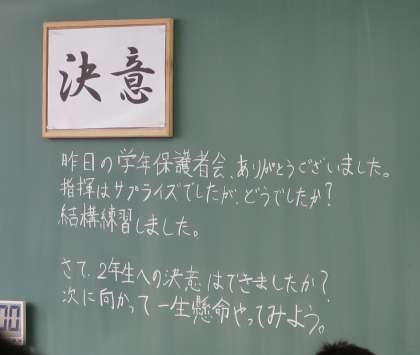 決意
昨日の学年保護者会、ありがとうございました。
指揮はサプライズでしたが、どうでしたか？
結構練習しました。
さて、2年生への決意はできましたか？
次に向かって一生懸命やってみよう。